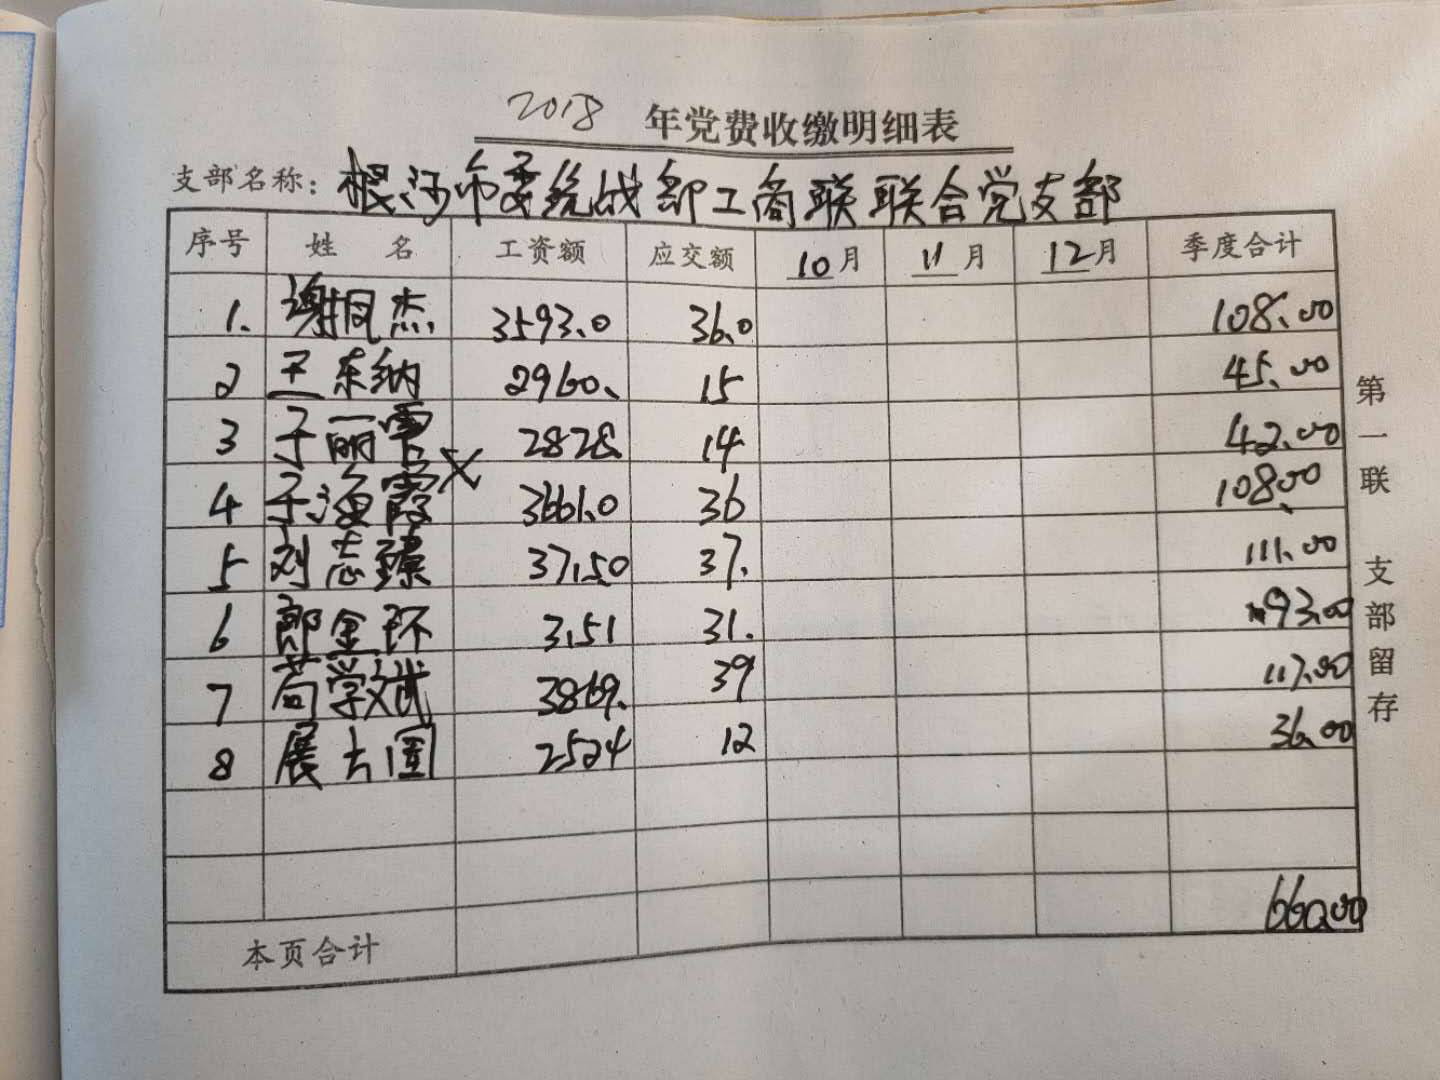 2018 年党费收缴明细表
支部名称：根河市委统战部工商联联合党支部
序号 姓 名 工资额 应交额 10月 11月 12月 季度合计
1. 谢凤杰 3593.0 36.0 108.00
2 王东纳 2960. 15 45.00
3 于丽雪 2828. 14 42.00
4 于海霞 X 3661.0 36 108.00
5 刘志臻 37.50 37. 111.00
6 郎金环 3.51 31. 93.00
7 苟学斌 3869. 39 117.00
8 展士国 2524 12 36.00
660.00
本页合计
第一联 支部留存